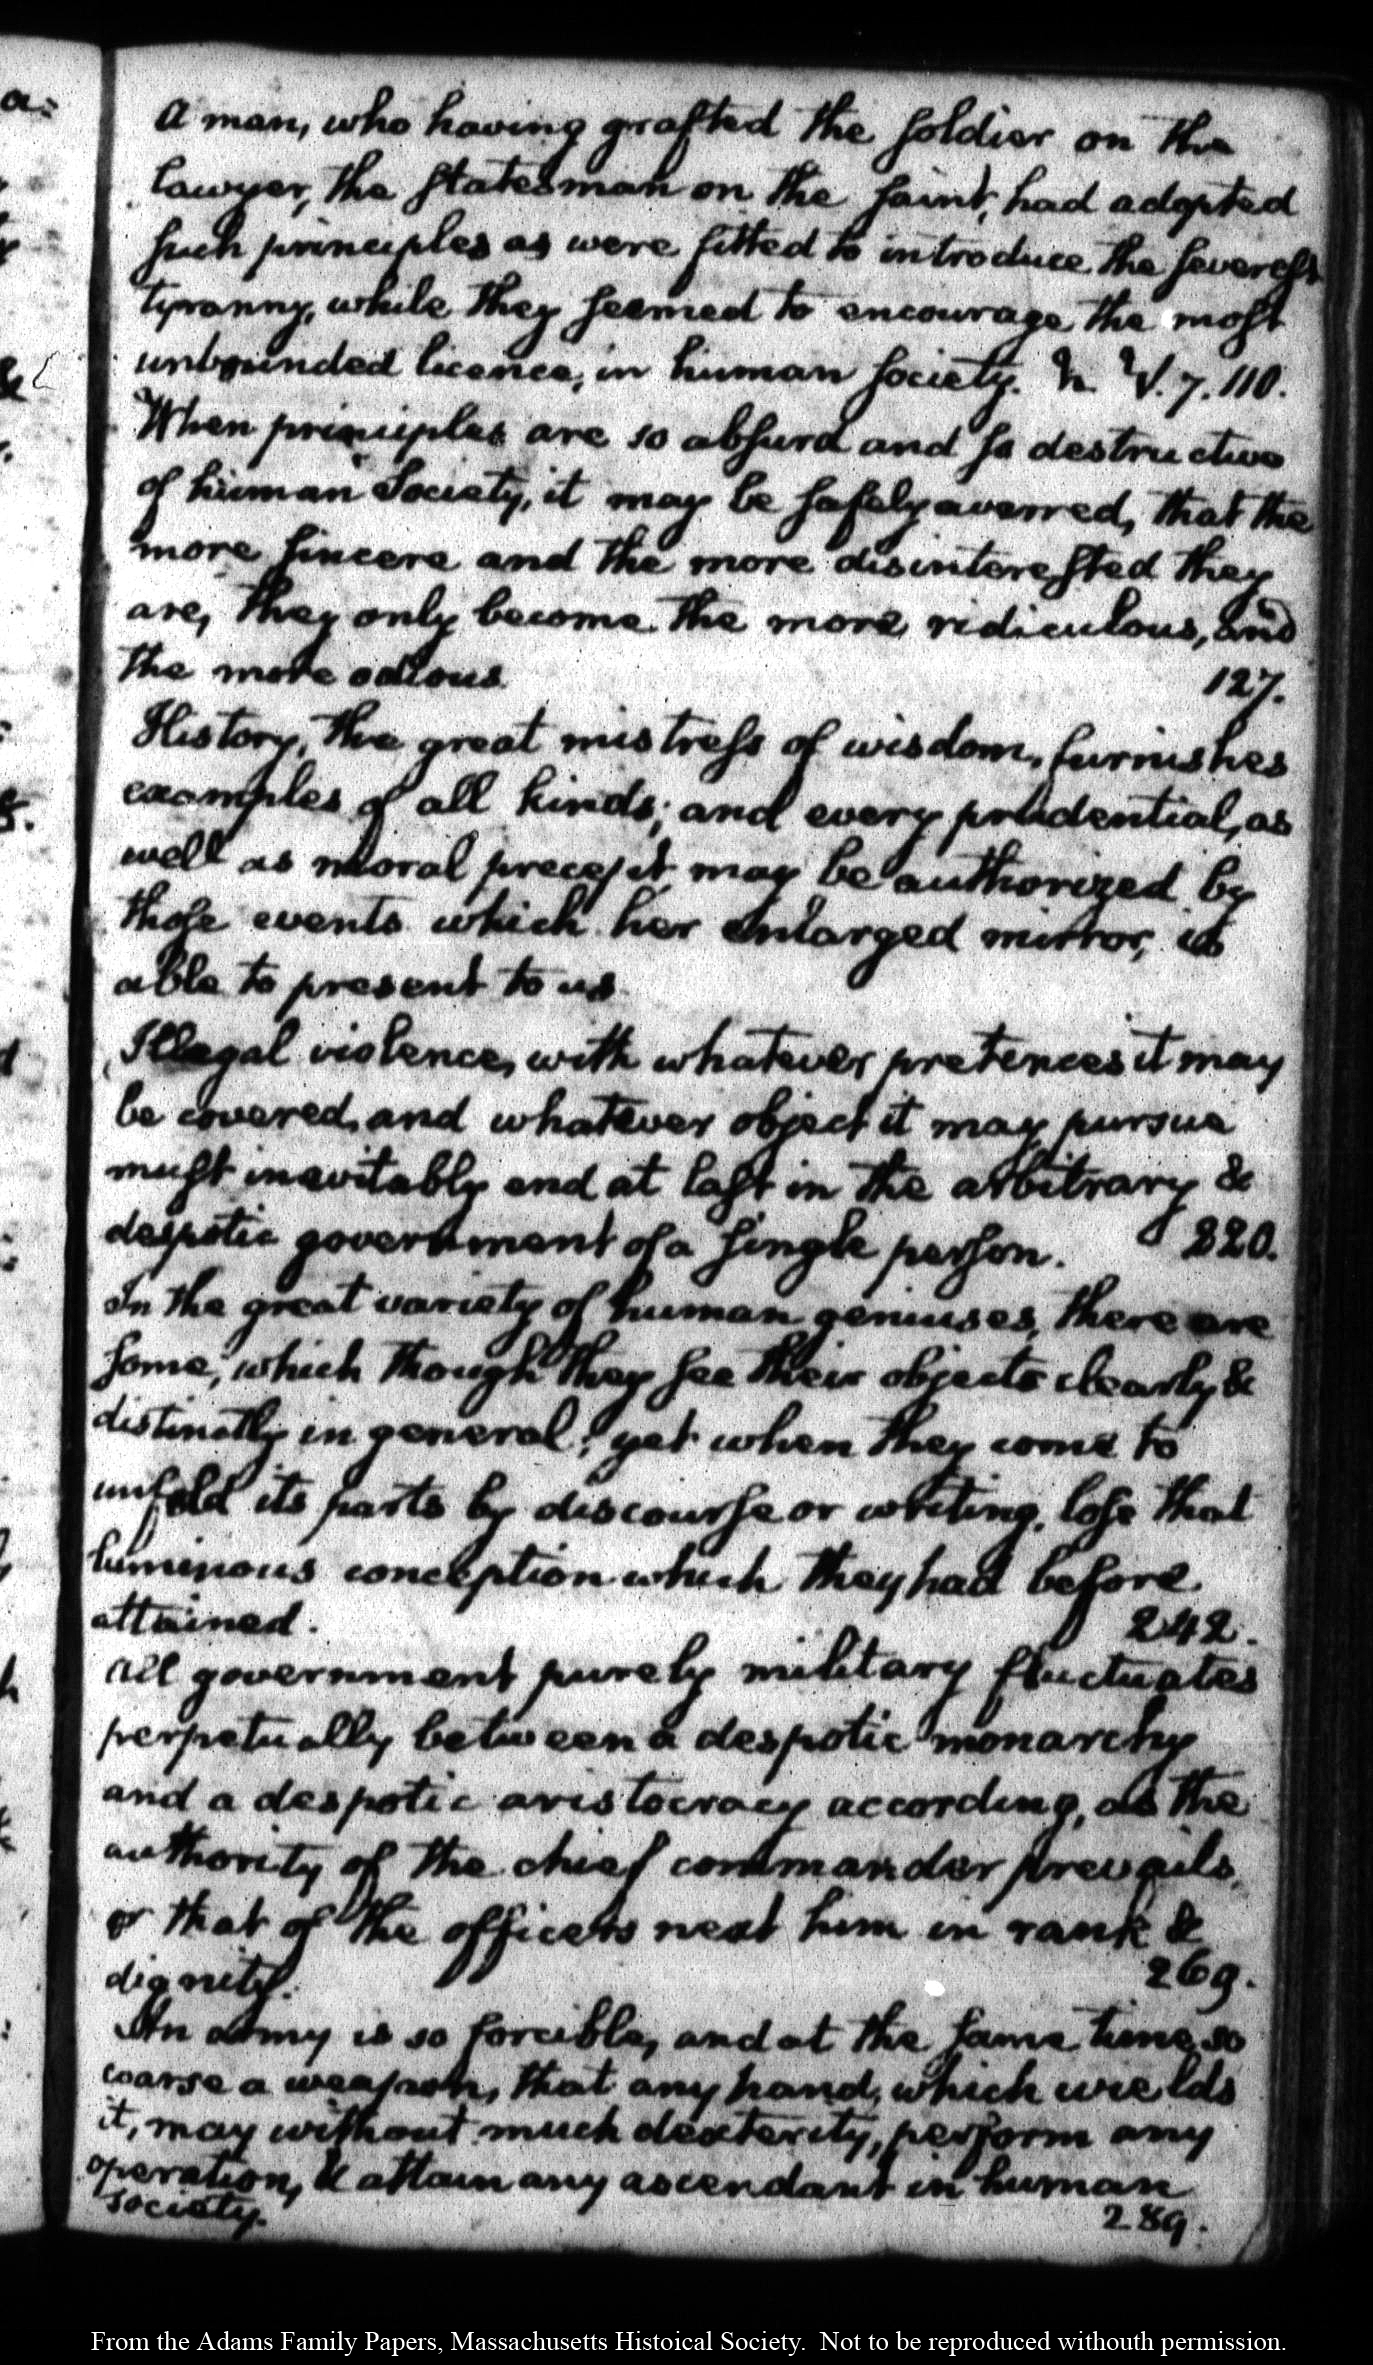 a:
&
8.
d
A man, who having grafted the soldier on the
lawyer, the statesman on the saint, had adopted
such principles as were fitted to introduce the severest
tyranny, while they seemed to encourage the most
unbounded licence, in human society. V. 7. 110.
When principles are so absurd and so destructive
of human Society, it may be safely averred, that the
more sincere and the more disinterested they
are, they only become the more ridiculous, and
the more odious 127.
History, the great mistress of wisdom, furnishes
examples of all kinds; and every prudential, as
well as moral precept may be authorized by
those events which her enlarged mirror, is
able to present to us
Illegal violence, with whatever pretences it may
be covered, and whatever object it may pursue
must inevitably end at last in the arbitrary &
despotic government of a single person. 220.
In the great variety of human geniuses, there are
some, which though they see their objects clearly &
distinctly in general; yet when they come to
unfold its parts by discourse or writing, lose that
luminous conception which they had before
attained. 242.
All government purely military fluctuates
perpetually between a despotic monarchy
and a despotic aristocracy according, as the
authority of the chief commander prevails,
or that of the officers next him in rank &
dignity. 269.
An army is so forcible, and at the same time so
coarse a weapon, that any hand, which wields
it, may without much dexterity, perform any
operation, & attain any ascendant in human
society. 289.
From the Adams Family Papers, Massachusetts Histoical Society.  Not to be reproduced withouth permission.